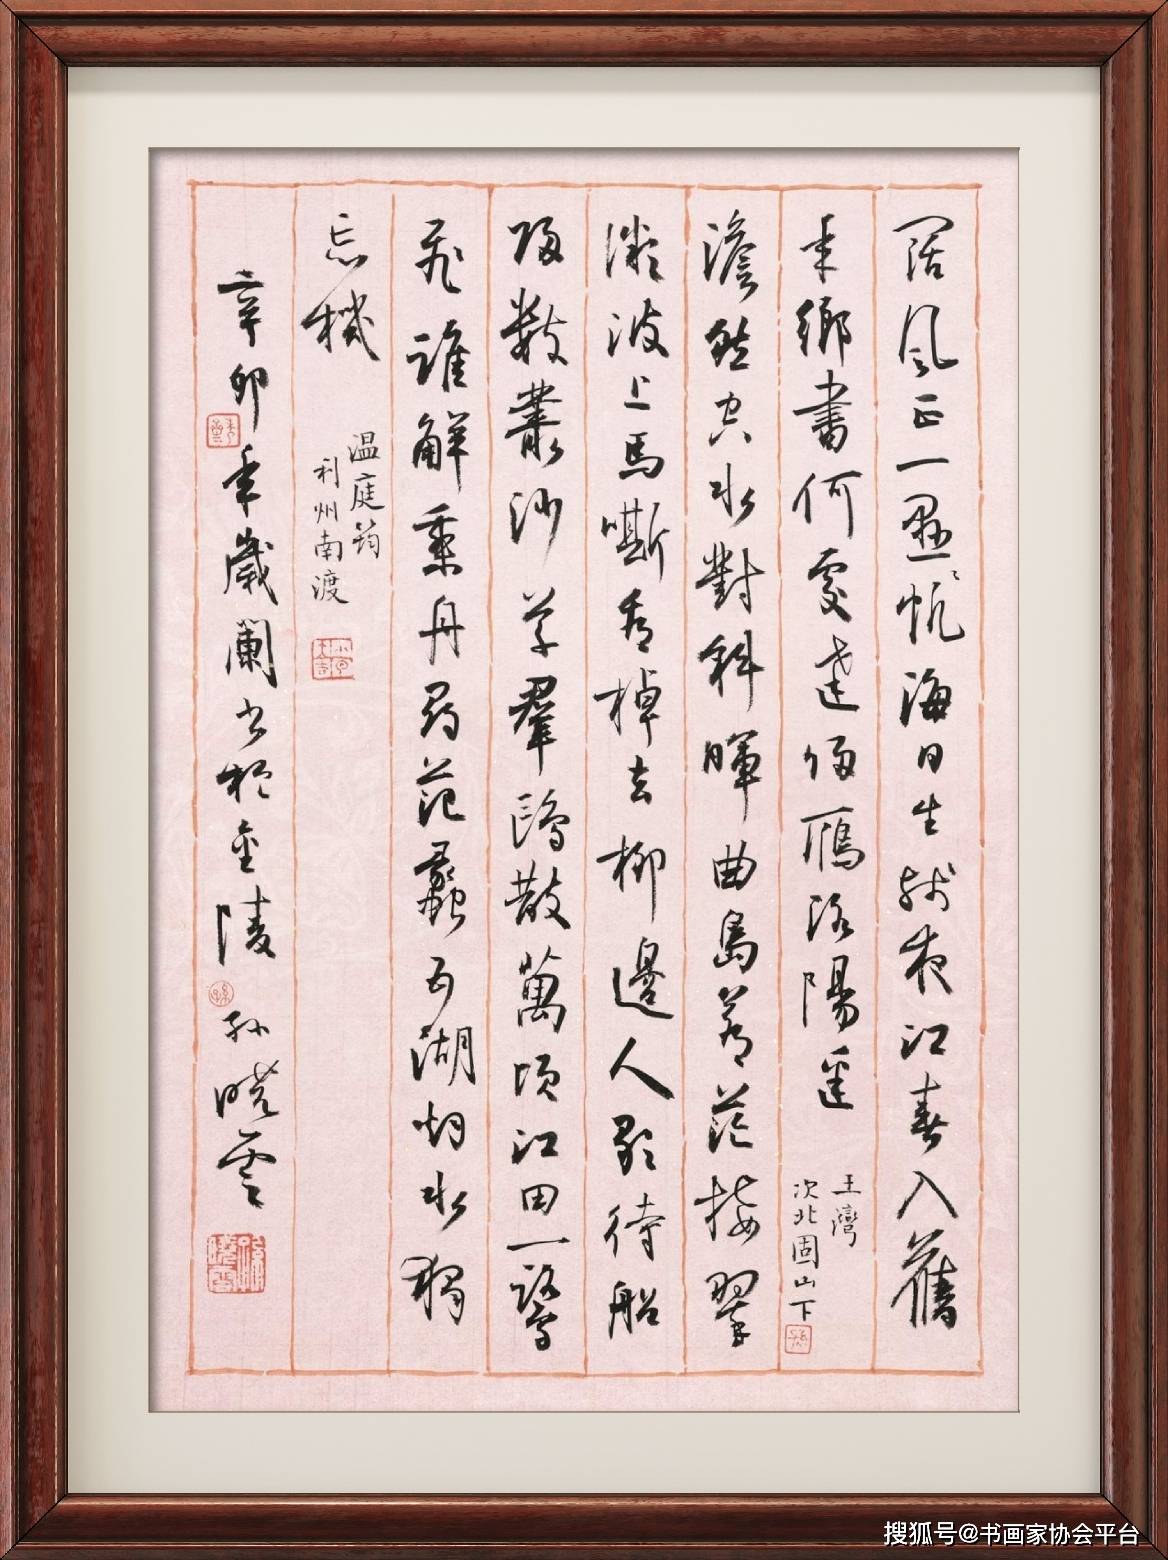 闊風正一懸帆海日生殘夜江春入舊
年鄉書何處達歸鴈洛陽邊
王灣
次北固山下
澹然空水對斜暉曲島蒼茫接翠
微波上馬嘶看棹去柳邊人歇待船
歸數叢沙草羣鷗散萬頃江田一鷺
飛誰解乘舟尋范蠡五湖烟水獨
忘機
温庭筠
利州南渡
辛卯年歲闌書於金陵孙曉雲
搜狐号@书画家协会平台